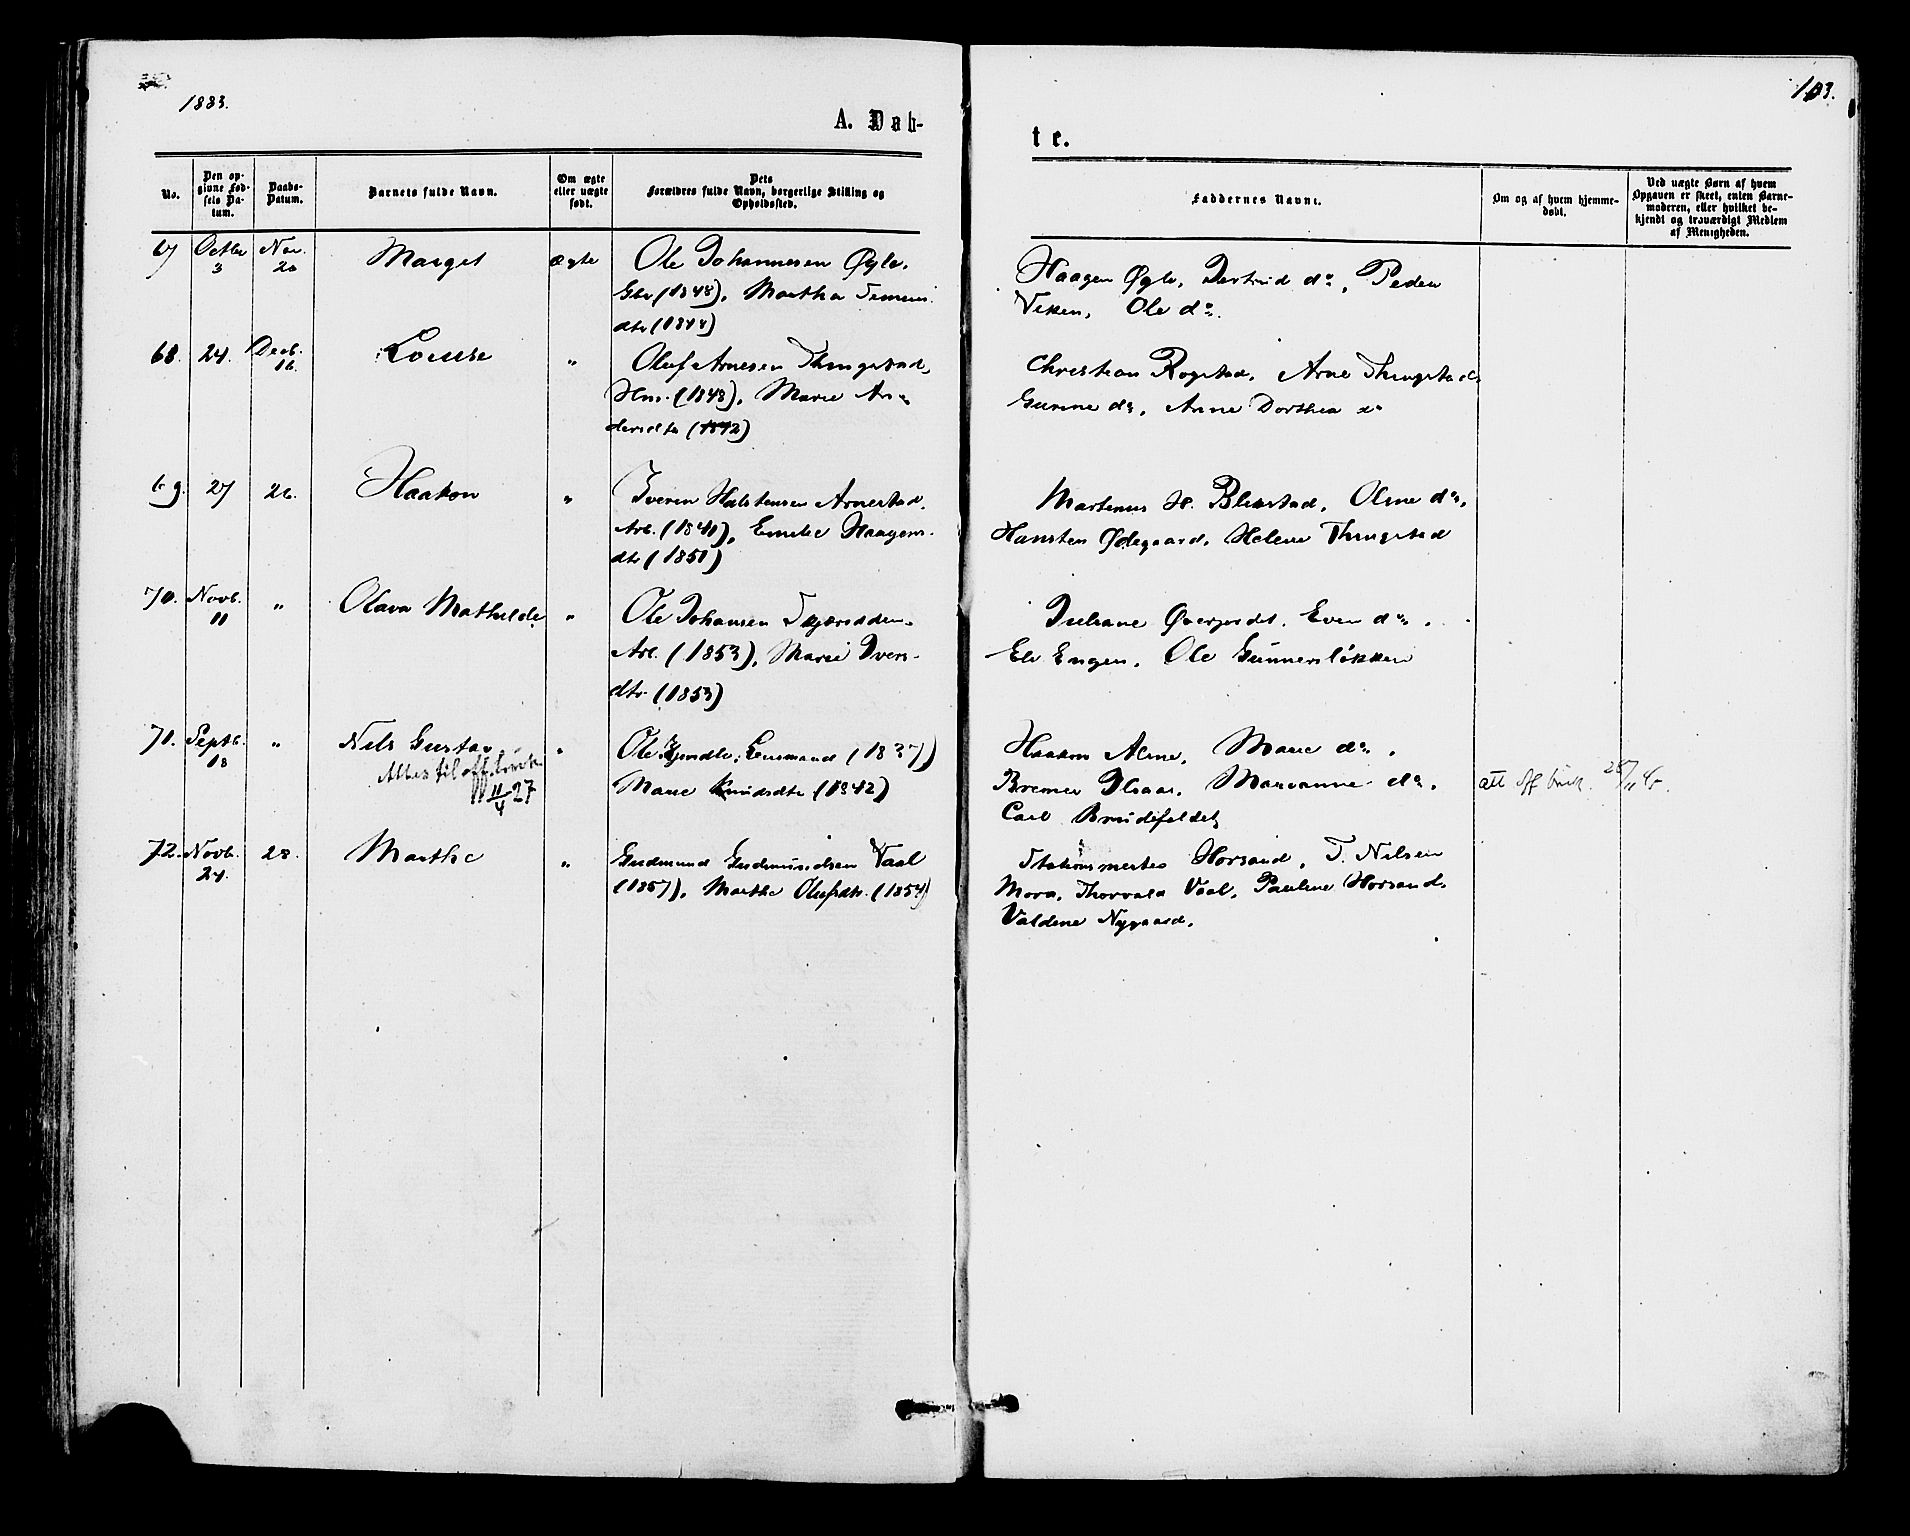 1883.
103.
A. Døb-
te.
No.
Den op-
givne Fød-
sels Da-
tum.
Daabs-
Datum.
Barnets fulde Navn.
Om ægte
eller uægte
født.
Dets
Forældres fulde Navn, borgerlige Stilling og
Opholdssted.
Faddernes Navne.
Om og af hvem hjemme-
døbt.
Ved uægte Børn af hvem
Opgaven er skeet, enten Barne-
moderen, eller hvilket be-
kjendt og troværdigt Medlem
af Menigheden.
67 Octbr 3 Nov. 20 Marget ægte Ole Johannesen Øgle,
Gbr (1848), Martha
dtr (1844)
Haagen Øgle, do, Peder
Viken, Ole do.
68. 24. Decb. 16. Louise " Oluf Arnesen Thingstad,
Hm. (1848), Marie An-
dersdtr (1842)
Christian Rogstad, Arne Thingstad,
Gunine do, Anne Dorthea do
69. 27 26. Haakon " Iveren Halstensen Arnestad,
Arb. (1840), Emilie Haagens-
dtr (1850)
Martinus H. Blikstad, Oline do,
Hansten Ødegaard, Helene Thingstad
70. Novb. 11 " Olava Mathilde " Ole Johansen
Arb. (1853), Marie Ivers-
dtr (1853)
Juliane Øverjordet, Even do,
Eli Engen, Ole Gunnersløkken
71. Septb. 18 " Nils Gustav " Ole Kjendli, Lensmand (1837)
Marie Knudsdtr (1842)
Attest til off. bruk
11/4 27
Haakon Alme, Marie do,
Bremer Ilsaas, Marianne do,
Carl Brudefaldet
att off bruk. 28/11 4
72. Novb. 24. 28. Marthe " Gudmund Gudmundsen Vaal
(1857), Marthe Olufsdtr. (1854)
Stationsmester Horsand, T. Nilsen
Mora, Thorvald Vaal, Pauline Horsand,
Valdine Nygaard.